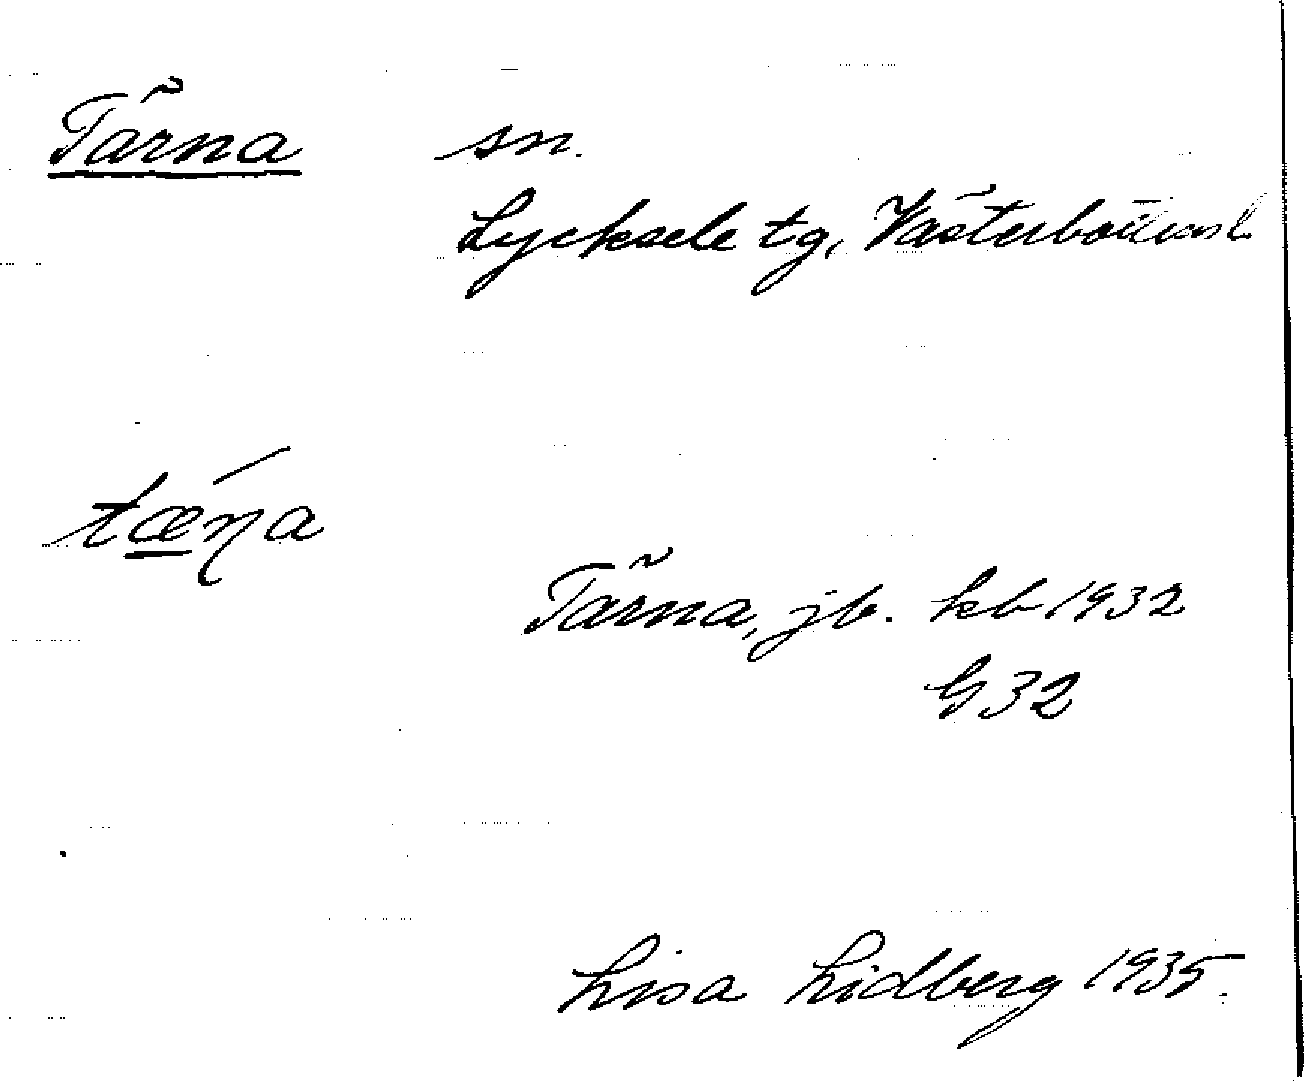 Tärna sn.
Lycksele tg, Västerbottensl.
tæ̲ɳa
Tärna, jb. kb 1932
G 32
Lisa Lidberg 1935.